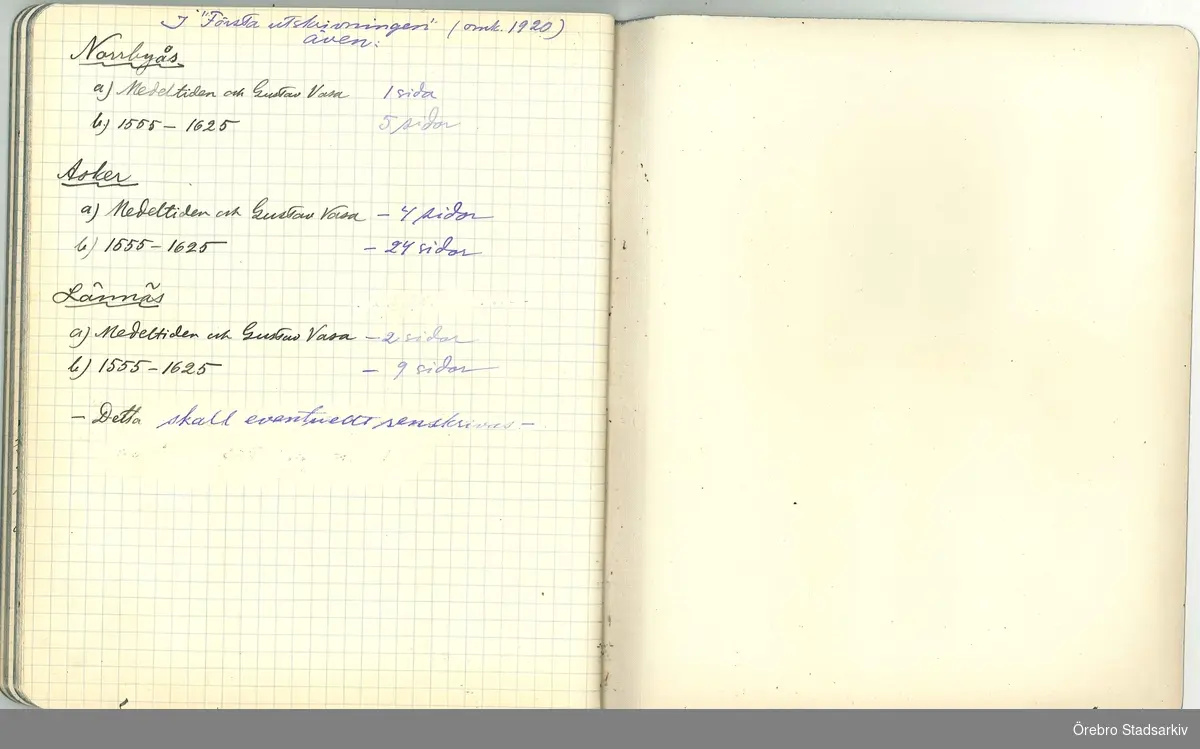 I "Första utskrivningen" (omk. 1920)
även:
Norrbyås
a) Medeltiden och Gustav Vasa 1 sida
b) 1555 – 1625 5 sidor
Asker
a) Medeltiden och Gustav Vasa – 4 sidor
b) 1555 – 1625 – 24 sidor
Lännäs
a) Medeltiden och Gustav Vasa – 2 sidor
b) 1555 – 1625 – 9 sidor
– Detta skall eventuellt renskrivas –
Örebro Stadsarkiv